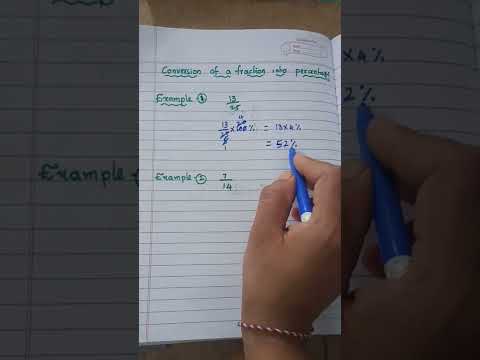 Conversion of a fraction into percentage
Example ① 13/25
13/25 × 100 % = 13 × 4 %
4
5
1
= 52 %
Example - ② 7/14
× 4 %
2 %